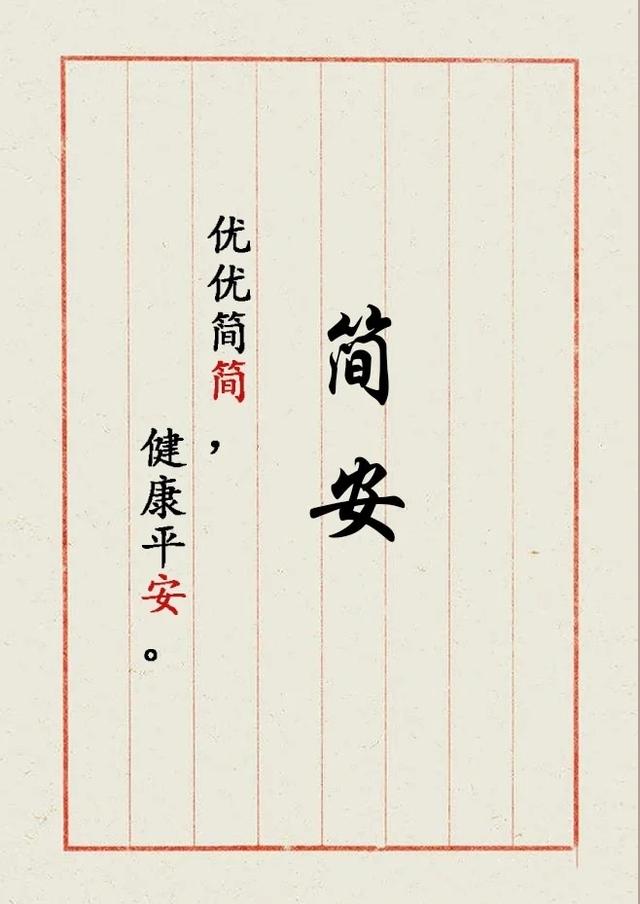 简安
优优简简，
健康平安。